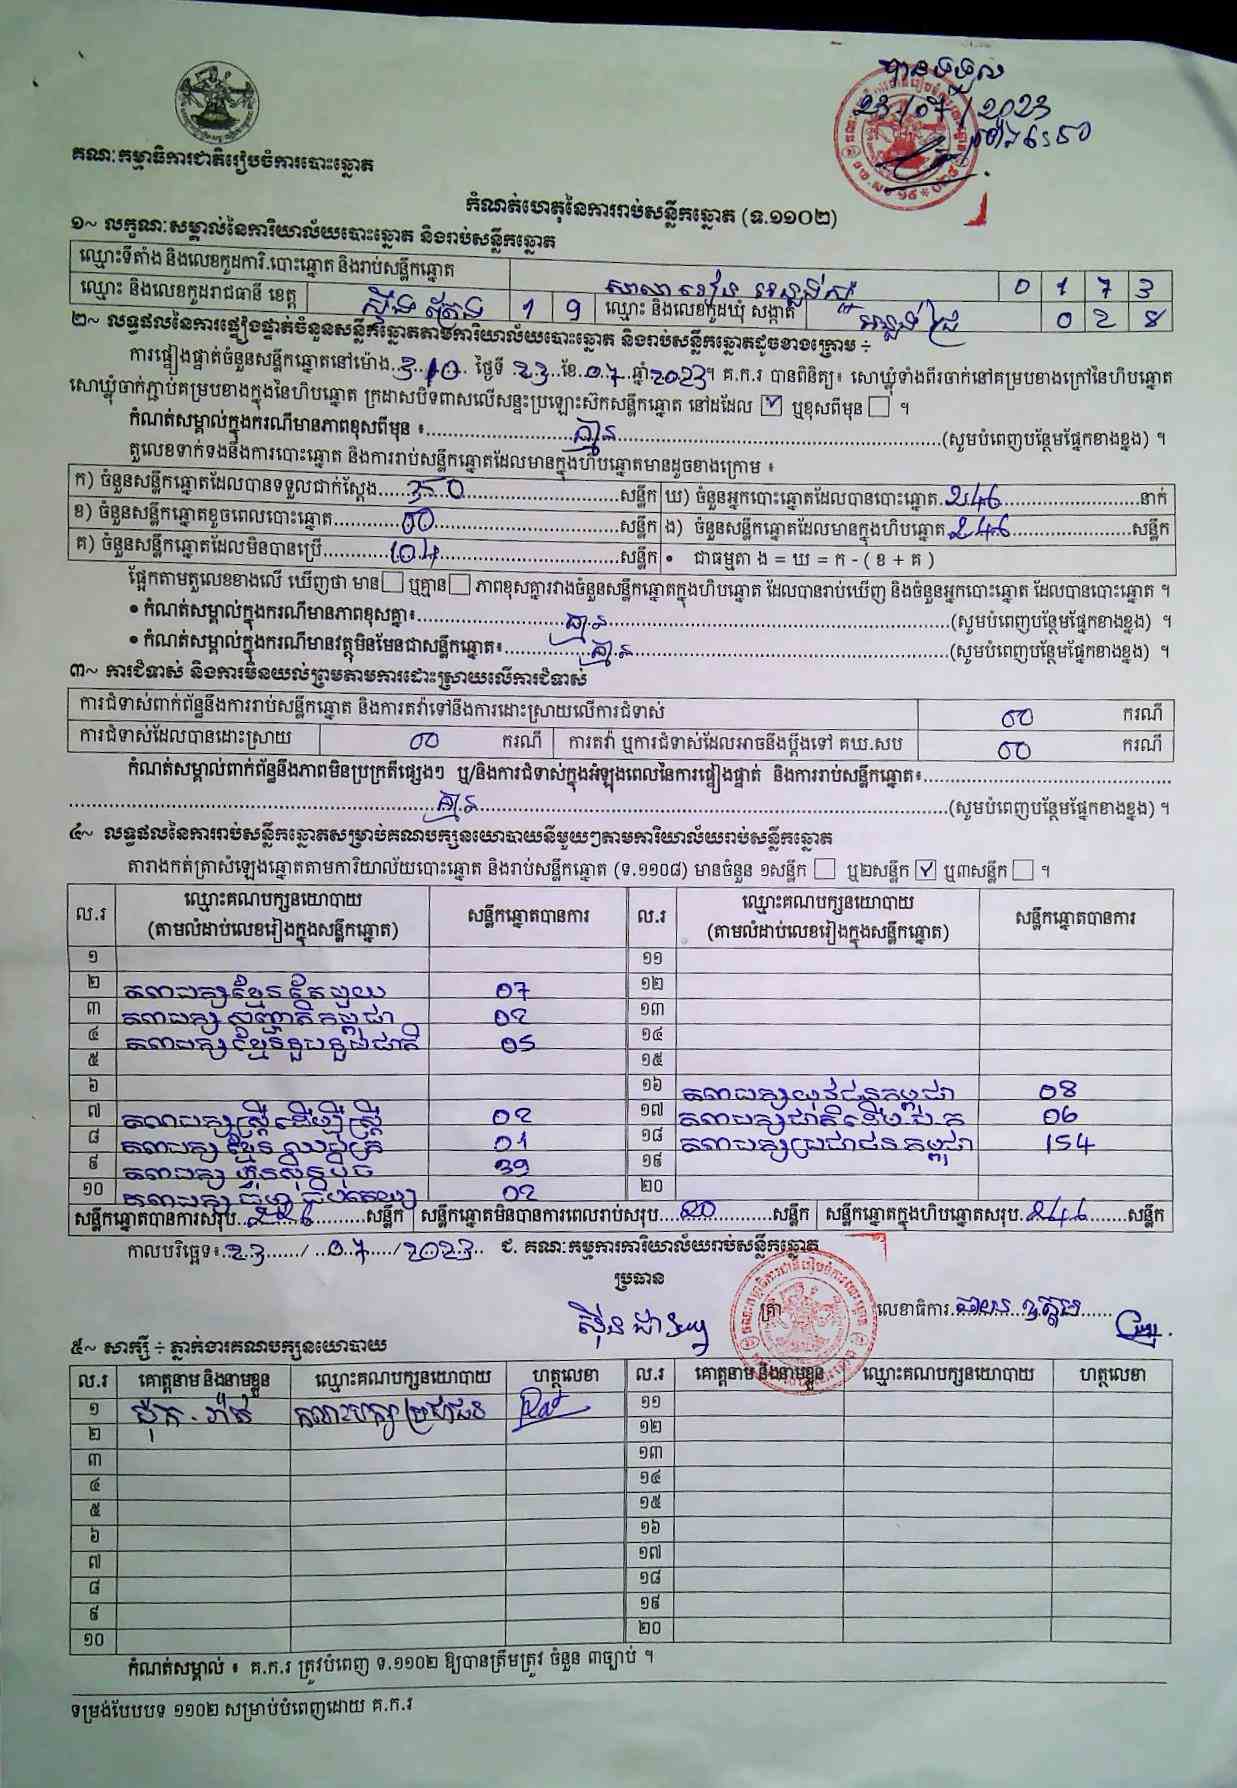 បានទទួល
23/07/2023
គណៈកម្មាធិការជាតិរៀបចំការបោះឆ្នោត
កំណត់ហេតុនៃការរាប់សន្លឹកឆ្នោត (ទ.១១០២)
១~ លក្ខណៈសម្គាល់នៃការិយាល័យបោះឆ្នោត និងរាប់សន្លឹកឆ្នោត
ឈ្មោះទីតាំង និងលេខកូដការិ.បោះឆ្នោត និងរាប់សន្លឹកឆ្នោត 0 1 7 3
ឈ្មោះ និងលេខកូដរាជធានី ខេត្ត ស្ទឹងត្រែង 1 9 ឈ្មោះ និងលេខកូដឃុំ សង្កាត់ 0 2 8
២~ លទ្ធផលនៃការផ្ទៀងផ្ទាត់ចំនួនសន្លឹកឆ្នោតតាមការិយាល័យបោះឆ្នោត និងរាប់សន្លឹកឆ្នោតដូចខាងក្រោម ÷
ការផ្ទៀងផ្ទាត់ចំនួនសន្លឹកឆ្នោតនៅម៉ោង 3:10 ថ្ងៃទី 23 ខែ 07 ឆ្នាំ 2023។ គ.ក.រ បានពិនិត្យ៖ សោឃ្លុំទាំងពីរចាក់នៅគម្របខាងក្រៅនៃហិបឆ្នោត
សោឃ្លុំចាក់ភ្ជាប់គម្របខាងក្នុងនៃហិបឆ្នោត ក្រដាសបិទពាសលើសន្ទះប្រឡោះស៊កសន្លឹកឆ្នោត នៅដដែល ☑ ឬខុសពីមុន ☐ ។
កំណត់សម្គាល់ក្នុងករណីមានភាពខុសពីមុន ៖ គ្មាន (សូមបំពេញបន្ថែមផ្នែកខាងខ្នង) ។
តួលេខទាក់ទងនឹងការបោះឆ្នោត និងការរាប់សន្លឹកឆ្នោតដែលមានក្នុងហិបឆ្នោតមានដូចខាងក្រោម ៖
ក) ចំនួនសន្លឹកឆ្នោតដែលបានទទួលជាក់ស្តែង 350 សន្លឹក ឃ) ចំនួនអ្នកបោះឆ្នោតដែលបានបោះឆ្នោត 246 នាក់
ខ) ចំនួនសន្លឹកឆ្នោតខូចពេលបោះឆ្នោត 00 សន្លឹក ង) ចំនួនសន្លឹកឆ្នោតដែលមានក្នុងហិបឆ្នោត 246 សន្លឹក
គ) ចំនួនសន្លឹកឆ្នោតដែលមិនបានប្រើ 104 សន្លឹក • ជាធម្មតា ង = ឃ = ក - ( ខ + គ )
ផ្អែកតាមតួលេខខាងលើ ឃើញថា មាន ☐ ឬគ្មាន ☐ ភាពខុសគ្នារវាងចំនួនសន្លឹកឆ្នោតក្នុងហិបឆ្នោត ដែលបានរាប់ឃើញ និងចំនួនអ្នកបោះឆ្នោត ដែលបានបោះឆ្នោត ។
• កំណត់សម្គាល់ក្នុងករណីមានភាពខុសគ្នា៖ គ្មាន (សូមបំពេញបន្ថែមផ្នែកខាងខ្នង) ។
• កំណត់សម្គាល់ក្នុងករណីមានវត្ថុមិនមែនជាសន្លឹកឆ្នោត៖ គ្មាន (សូមបំពេញបន្ថែមផ្នែកខាងខ្នង) ។
៣~ ការជំទាស់ និងការមិនយល់ព្រមតាមការដោះស្រាយលើការជំទាស់
ការជំទាស់ពាក់ព័ន្ធនឹងការរាប់សន្លឹកឆ្នោត និងការតវ៉ាទៅនឹងការដោះស្រាយលើការជំទាស់ 00 ករណី
ការជំទាស់ដែលបានដោះស្រាយ 00 ករណី ការតវ៉ា ឬការជំទាស់ដែលអាចនឹងប្តឹងទៅ គឃ.សប 00 ករណី
កំណត់សម្គាល់ពាក់ព័ន្ធនឹងភាពមិនប្រក្រតីផ្សេងៗ ឬ/និងការជំទាស់ក្នុងអំឡុងពេលនៃការផ្ទៀងផ្ទាត់ និងការរាប់សន្លឹកឆ្នោត៖
គ្មាន (សូមបំពេញបន្ថែមផ្នែកខាងខ្នង) ។
៤~ លទ្ធផលនៃការរាប់សន្លឹកឆ្នោតសម្រាប់គណបក្សនយោបាយនីមួយៗតាមការិយាល័យរាប់សន្លឹកឆ្នោត
តារាងកត់ត្រាសំឡេងឆ្នោតតាមការិយាល័យបោះឆ្នោត និងរាប់សន្លឹកឆ្នោត (ទ.១១០៨) មានចំនួន ១សន្លឹក ☐ ឬ២សន្លឹក ☑ ឬ៣សន្លឹក ☐ ។
ល.រ ឈ្មោះគណបក្សនយោបាយ (តាមលំដាប់លេខរៀងក្នុងសន្លឹកឆ្នោត) សន្លឹកឆ្នោតបានការ ល.រ ឈ្មោះគណបក្សនយោបាយ (តាមលំដាប់លេខរៀងក្នុងសន្លឹកឆ្នោត) សន្លឹកឆ្នោតបានការ
១ ១១
២ គណបក្សខ្មែរតែមួយ 07 ១២
៣ គណបក្សសញ្ជាតិកម្ពុជា 02 ១៣
៤ គណបក្សខ្មែររួបរួមជាតិ 05 ១៤
៥ ១៥
៦ ១៦ គណបក្សយុវជនកម្ពុជា 08
៧ គណបក្សស្ត្រីដើម្បីស្ត្រី 02 ១៧ គណបក្ស 06
៨ គណបក្ស 01 ១៨ គណបក្សប្រជាជនកម្ពុជា 154
៩ គណបក្សហ៊្វុនស៊ិនប៉ិច 39 ១៩
១០ គណបក្ស 02 ២០
សន្លឹកឆ្នោតបានការសរុប 226 សន្លឹក សន្លឹកឆ្នោតមិនបានការពេលរាប់សរុប 20 សន្លឹក សន្លឹកឆ្នោតក្នុងហិបឆ្នោតសរុប 246 សន្លឹក
កាលបរិច្ឆេទ៖ 23 / 07 / 2023 ជ. គណៈកម្មការការិយាល័យរាប់សន្លឹកឆ្នោត
ប្រធាន
ត្រា លេខាធិការ
៥~ សាក្សី ÷ ភ្នាក់ងារគណបក្សនយោបាយ
ល.រ គោត្តនាម និងនាមខ្លួន ឈ្មោះគណបក្សនយោបាយ ហត្ថលេខា ល.រ គោត្តនាម និងនាមខ្លួន ឈ្មោះគណបក្សនយោបាយ ហត្ថលេខា
១ គណៈបក្សប្រជាជន ១១
២ ១២
៣ ១៣
៤ ១៤
៥ ១៥
៦ ១៦
៧ ១៧
៨ ១៨
៩ ១៩
១០ ២០
កំណត់សម្គាល់ ៖ គ.ក.រ ត្រូវបំពេញ ទ.១១០២ ឱ្យបានត្រឹមត្រូវ ចំនួន ៣ច្បាប់ ។
ទម្រង់បែបបទ ១១០២ សម្រាប់បំពេញដោយ គ.ក.រ